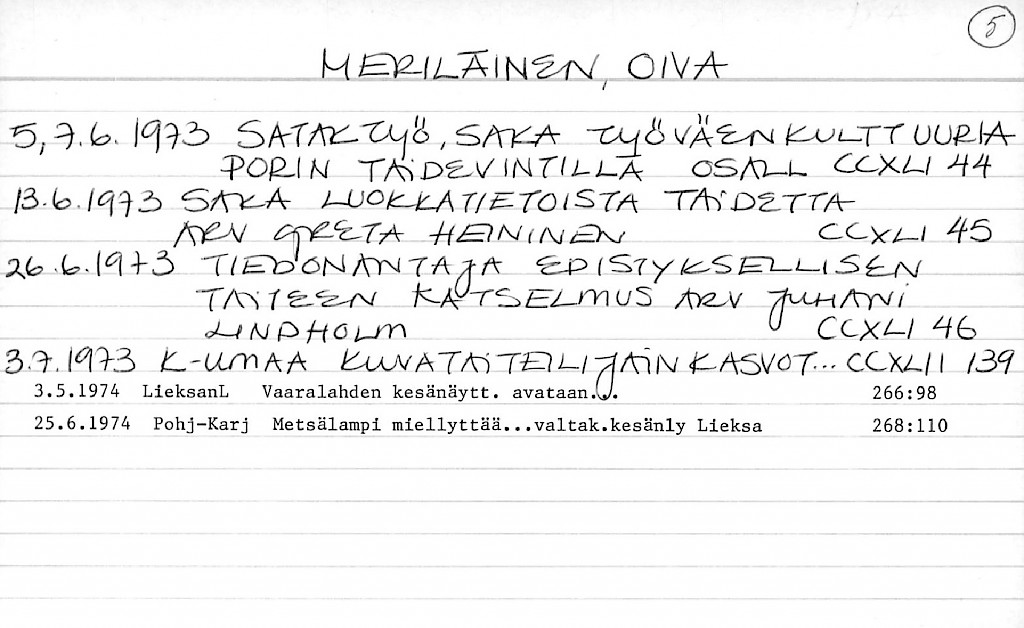 5
MERILÄINEN, OIVA
5,7.6.1973 SATAK TYÖ, SAKA TYÖVÄENKULTTUURIA
PORIN TAIDEVINTILLÄ OSALL CCXLI 44
13.6.1973 SAKA LUOKKATIETOISTA TAIDETTA
ARV GRETA HEININEN CCXLI 45
26.6.1973 TIEDONANTAJA EDISTYKSELLISEN
TAITEEN KATSELMUS ARV JUHANI
LINDHOLM CCXLI 46
3.7.1973 K-UMAA KUVATAITEILIJAIN KASVOT... CCXLII 139
3.5.1974 LieksanL Vaaralahden kesänäytt. avataan... 266:98
25.6.1974 Pohj-Karj Metsälampi miellyttää...valtak.kesänly Lieksa 268:110